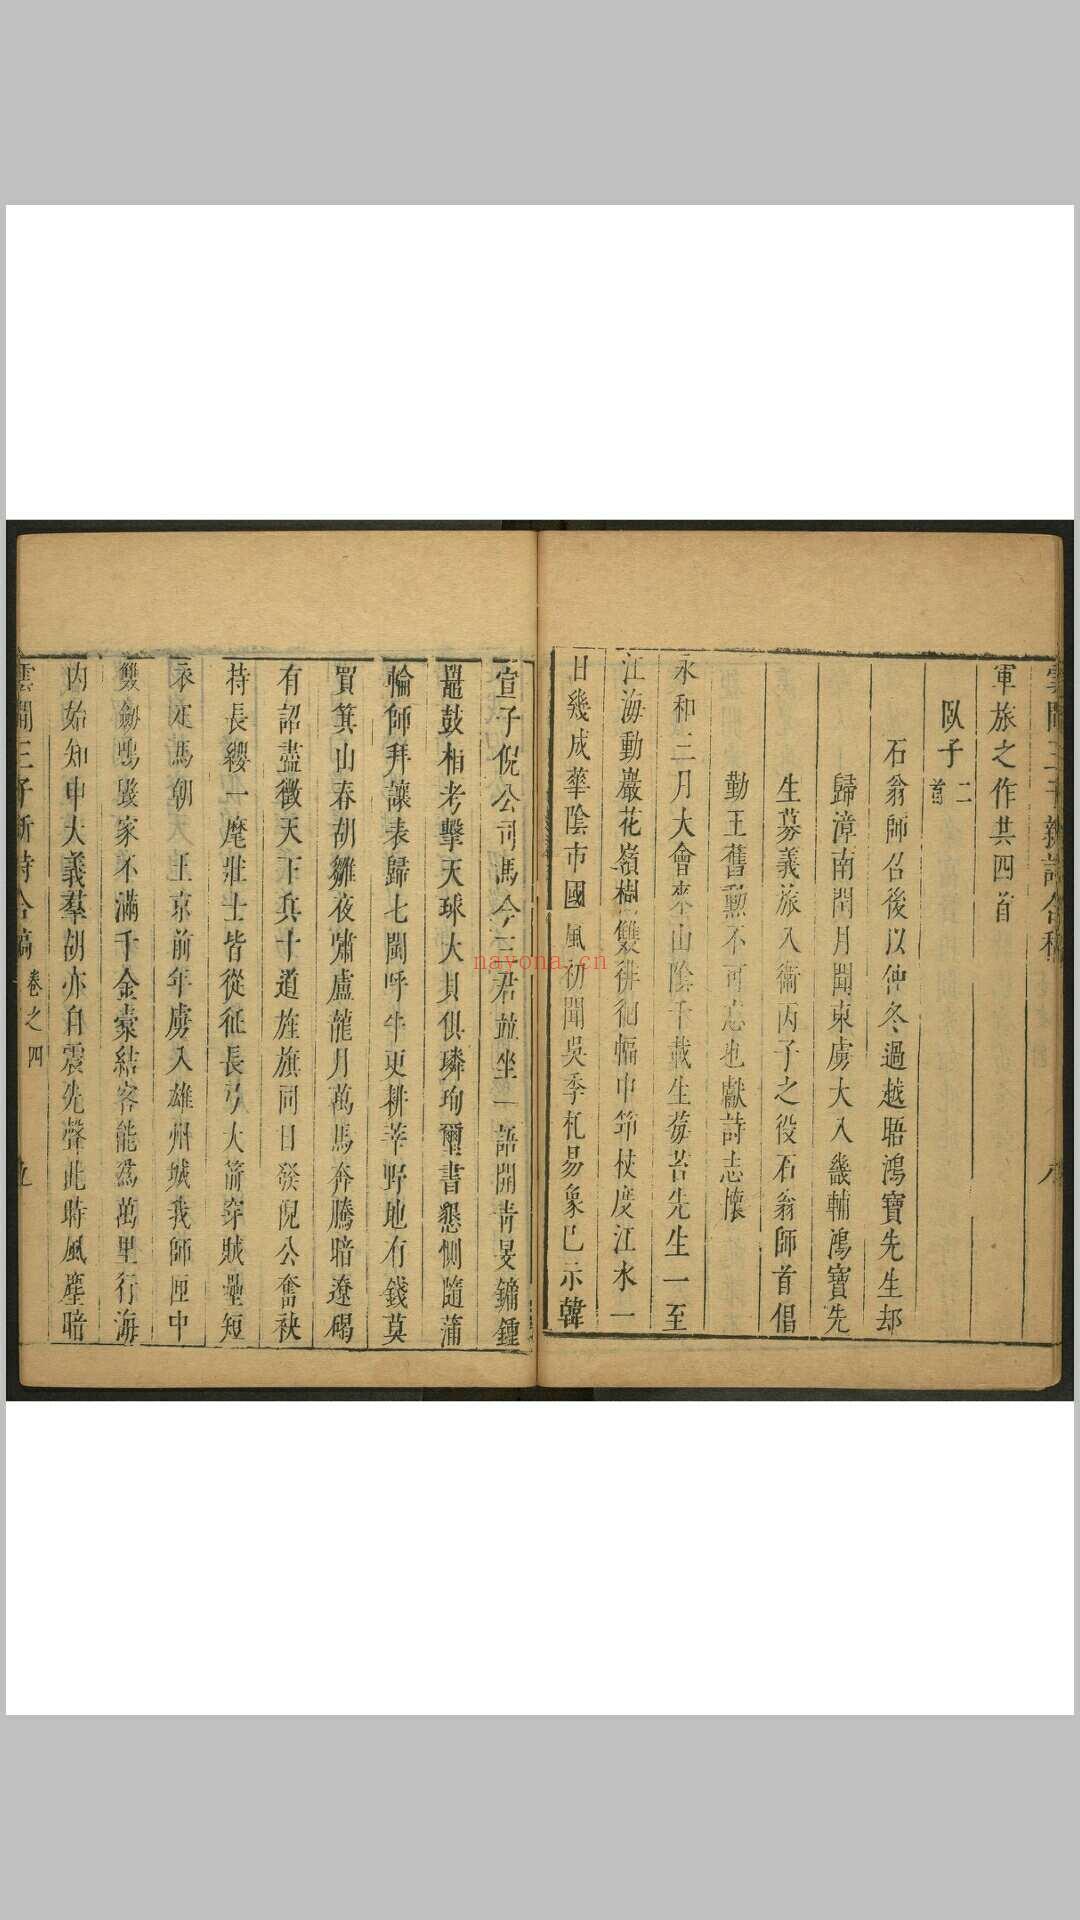 軍旅之作其四首
臥子二首
石翁師召後以仲冬過越晤鴻寶先生却
歸漳南閏月聞東虜大入畿輔鴻寶先
生募義旅入衞丙子之役石翁師首倡
勤王舊勳不可忘也獻詩志懷
永和三月大會來山陰千載生莓苔先生一至
江海動巖花嶺樹雙徘徊幅巾笻杖度江水一
日幾成華陰市國風初聞吳季札易象已示韓
宣子倪公司馮今三君並坐一語開青旻鏞鍾
鼉鼓相考擊天球大貝俱璘珣璽書懇惻隨蒲
輪師拜讓表歸七閩呼牛更耕莘野地有錢莫
買箕山春胡雛夜嘯盧龍月萬馬奔騰暗遼碣
有詔盡徵天下兵十道旌旗同日發倪公奮袂
持長纓一麾壯士皆從征長弓大箭穿賊壘短
衣疋馬朝天王京前年虜入雄州城我師匣中
雙劒鳴毀家不滿千金橐結客能爲萬里行海
內始知申大義羣胡亦自震先聲此時風塵暗
雲間三子新詩合稿
卷之四